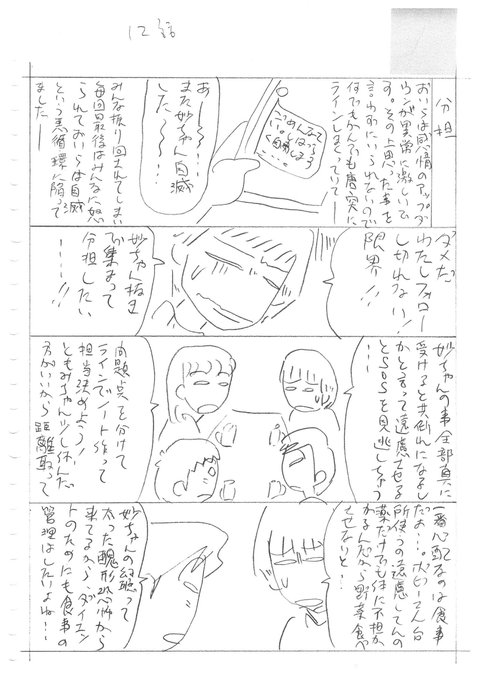 12話
分担
おいらは感情のアップダ
ウンが異常に激しいで
す。その上思った事を
言わずにいられないので
何でもかんでも唐突に
ラインしまくっていて―
ごめんなさ
い。しばらく
あ〜…
また妙ちゃん自滅
した〜…
みんな振り回されてしまい
毎回最後はみんなに怒
られておいらは自滅
という悪循環に陥って
ました―
ダメだ
わたしフォロー
し切れない!
限界!!
妙ちゃん抜き
で集まって
分担したい
……!!
妙ちゃんの事全部真に
受けると共倒れになるし
かと言って遠慮させる
とSOSを見逃しちゃう
…
問題点を分けて
ラインでノート作って
担当決めよう!
ともみちゃん少し休んだ
方がいいから距離取って
一番心配なのは食事
だよ…。
所使うの遠慮してんの
薬だけでも体に不担か
かるんだから野菜食べ
させないと…
妙ちゃんの幻聴って
太った醜形恐怖から
来てるから、ダイエッ
トのためにも食事の
管理はしたいよね…!